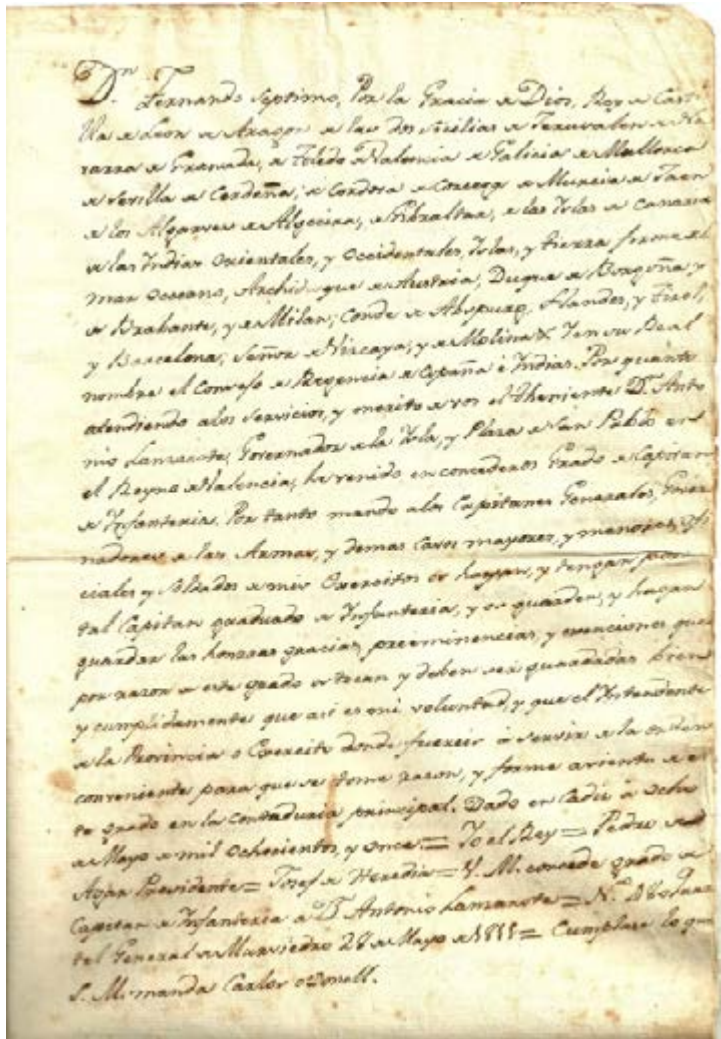 Dn. Fernando Septimo, Por la Gracia de Dios, Rey de Casti
lla de Leon de Aragon de las dos Sicilias de Jerusalen de Na
varra de Granada, de Toledo de Valencia de Galicia de Mallorca
de Sevilla de Cerdeña, de Cordova de Corcega de Murcia de Jaen
de los Algarves de Algecira, de Gibraltar, de las Yslas de Canaria
de las Yndias Orientales, y Occidentales, Yslas, y tierra firme del
mar Occeano, Archiduque de Austria, Duque de Borgoña, y
de Brabante, y de Milan; Conde de Abspurg, Flandes, y Tirol,
y Barcelona; Señor de Vizcaya, y de Molina &. Y en su Real
nombre el Consejo de Regencia de España é Yndias. Por quanto
atendiendo a los servicios, y merito de vos el Theniente Dn. Anto
nio Lamarote, Governador de la Ysla, y Plaza de San Pablo en
el Reyno de Valencia, he venido en concederos Grado de Capitan
de Ynfanteria. Por tanto mando a los Capitanes Generales, Gover
nadores de las Armas, y demas Cavos mayores, y menores, ofi
ciales y Soldados de mis Exercitos os hayan, y tengan por
tal Capitan graduado de Ynfanteria, y os guarden, y hagan
guardar las honrras gracias, preeminencias, y exenciones que
por razon de este grado os tocan y deben ser guardadas bien
y cumplidamente que asi es mi voluntad, y que el Yntendente
de la Provincia o Exercito donde fuereis á servir de la orden
conveniente para que se tome razon, y forme asiento de es
te grado en la contaduria principal. Dado en Cadiz á ocho
de Mayo de mil ochocientos, y once = Yo el Rey = Pedro de
Agar Presidente = Josef de Heredia = V. M. concede grado de
Capitan de Ynfanteria a Dn. Antonio Lamarote = Quar
tel General de Murviedro 28 de Mayo de 1811 = Cumplase lo que
S. M. manda Carlos oDonell.